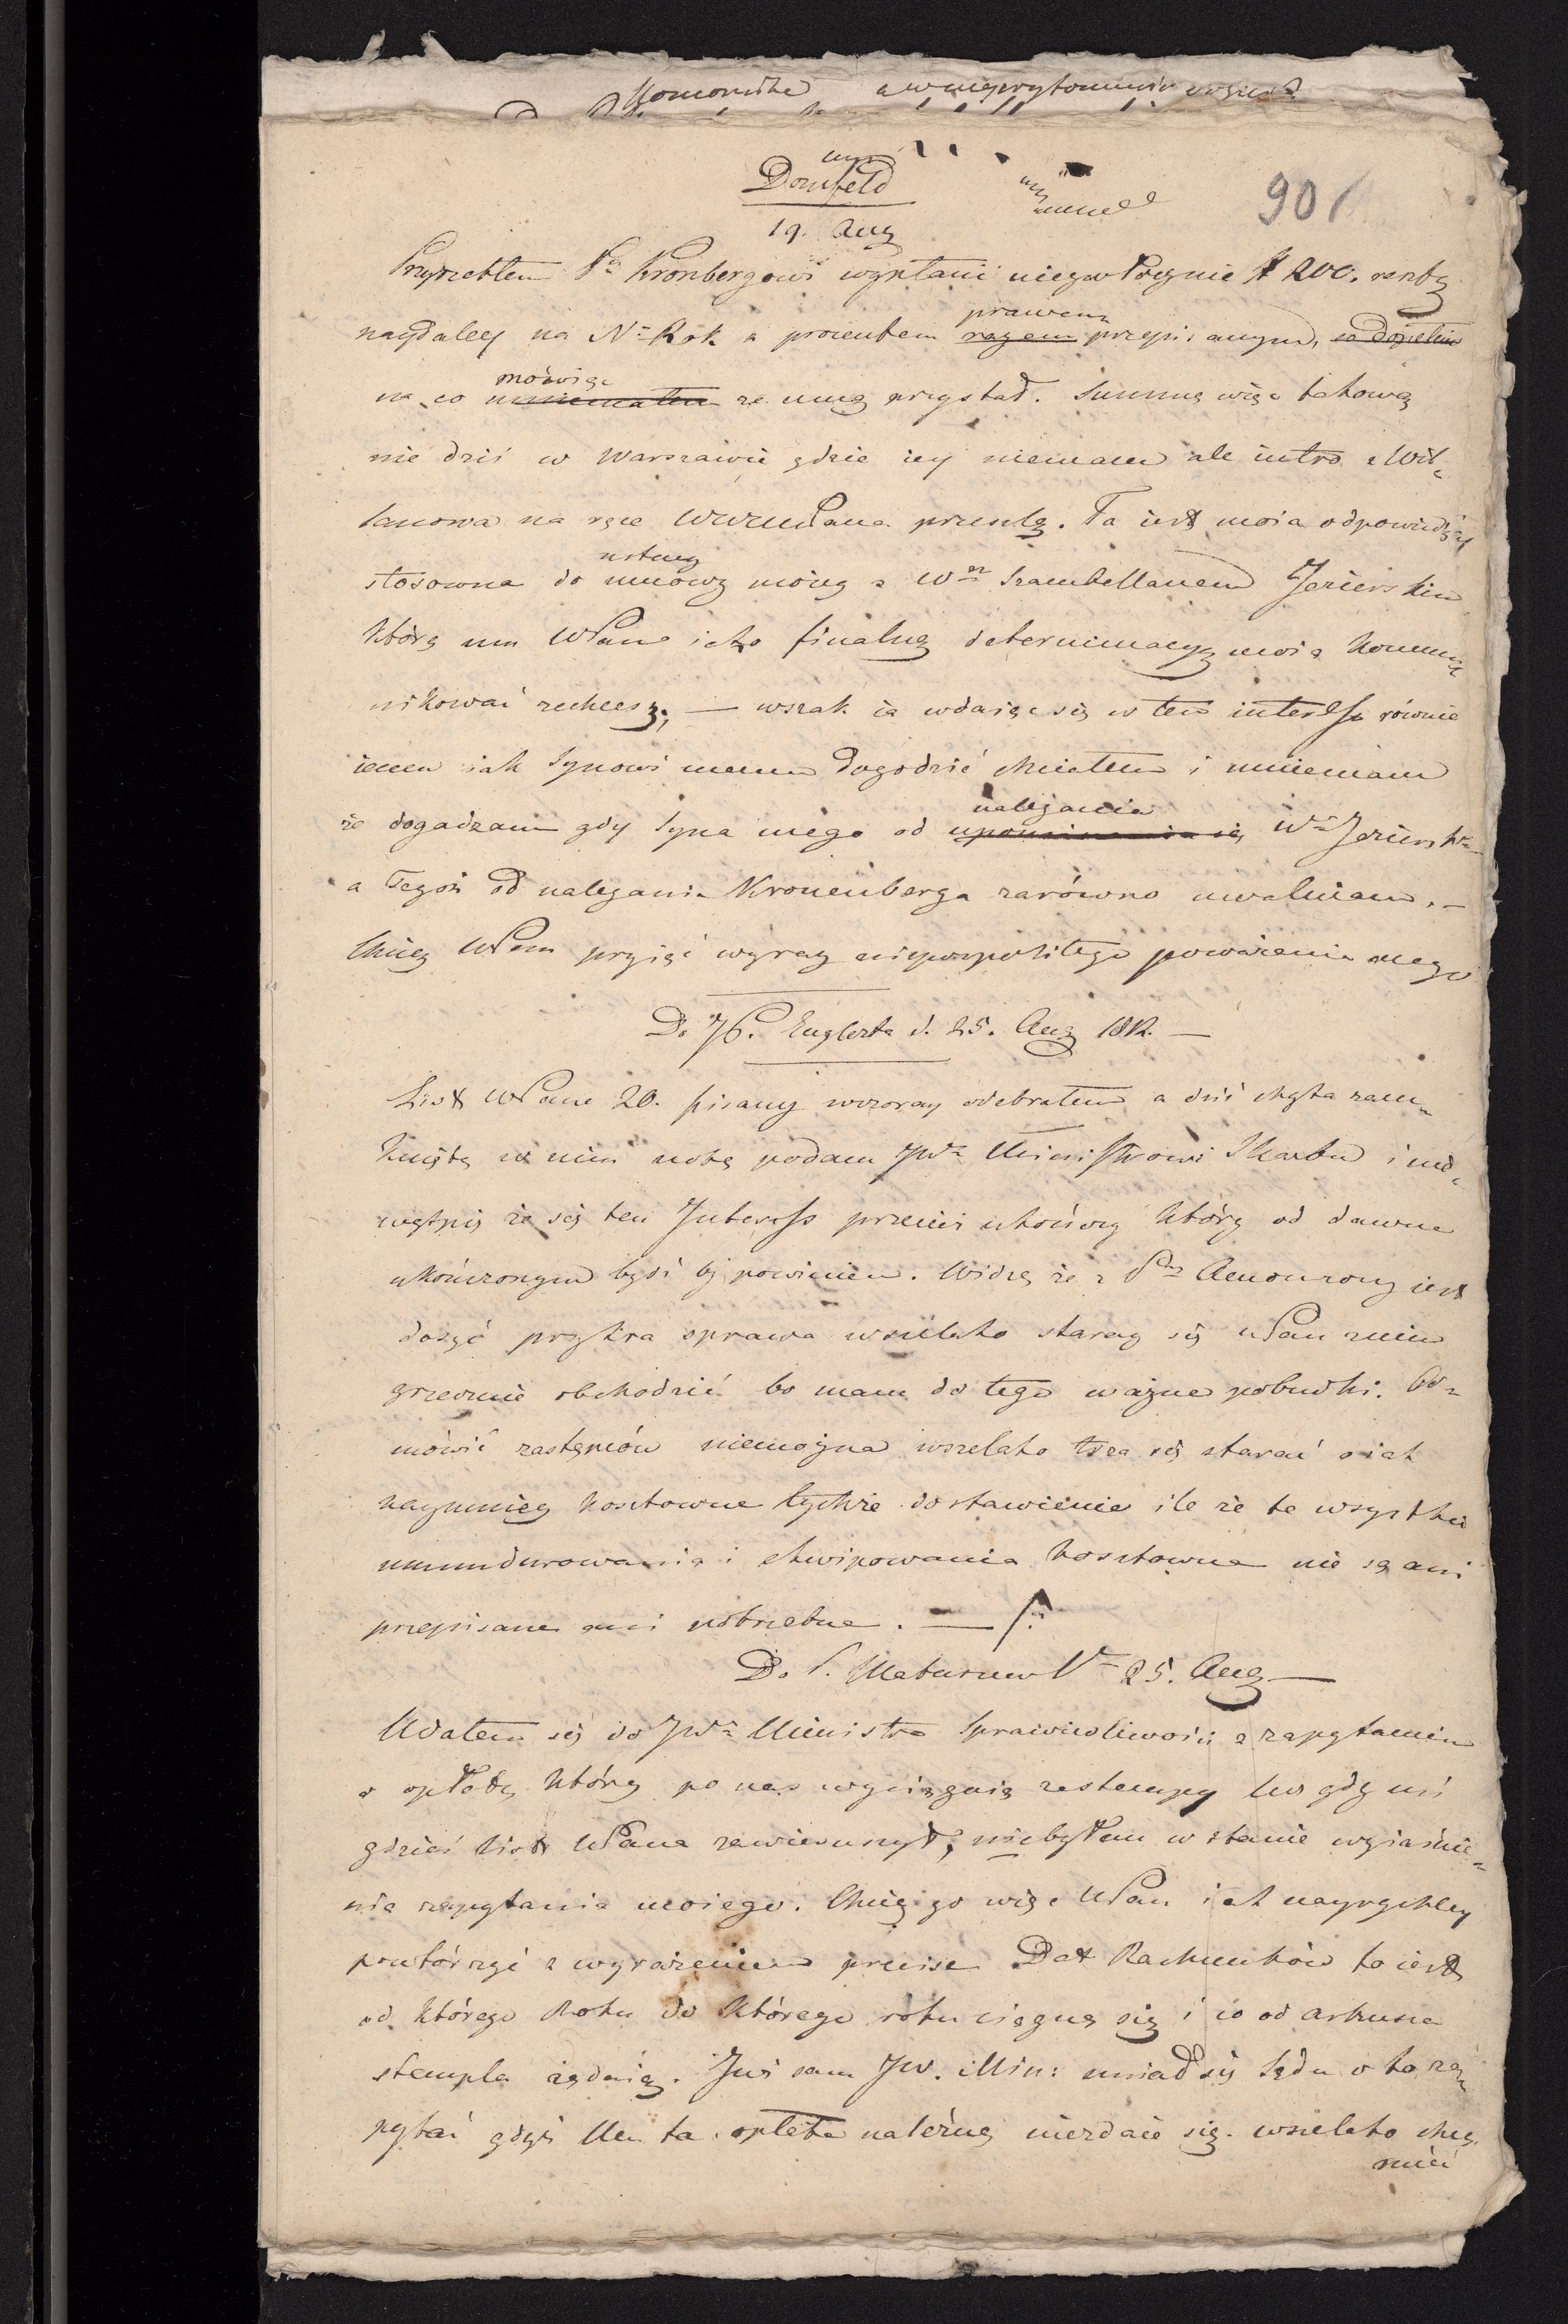 Domfeld
901
19. Aug
Przyrzekłem Pu Kronbergowi wypłacić niezwłocznie # 200. resztę
naydaley na Ny Rok z procentem prawem razem przepisanym,
na co mówisz mniemałem że umą przystał. Summę więc takową
nie dziś w Warszawie gdzie iey niemam ale iutro z Wil-
lanowa na ręce WPana przeszlę. Ta iest moia odpowiedź
stosowna do ustney umowy moiey z Wm Szambellanem Jezierskim
którą mu WPan iako finalną determinacyą moią kommu-
nikować zechcesz, — wszak ia wdaiąc się w ten interess równie
iemu iak Synowi memu dogodzić chciałem i mniemam
że dogadzam gdy Syna mego od nalegania upominania się Wo Jezierskgo
a Tegoż od nalegania Kronenberga zarówno uwalniam. —
Chciey WPan przyiąć wyrazy niepospolitego poważenia mego
Do JP. Englerta d. 25. Aug 1812. —
List WPana 20. pisany wczoray odebrałem a dziś chyba zam-
kniętą w nim notę podam JWu Ministrowi Skarbu i nie-
wątpię że się ten Interess przecię ukończy który od dawna
ukończonym bydź by powinien. Widzę że z Pą Aemonrony iest
dosyć przykra sprawa wszelako staray się WPan z nim
grzecznie obchodzić bo mam do tego ważne pobudki. Od-
mówić zastępców niemożna wszelako trza się starać o iak
naymniey kosztowne tychże dostawienie ile że te wszystkie
umundurowania i ekwipowania kosztowne nie są ani
przepisane ani potrzebne. —
Do P. 25. Aug —
Udałem się do JWo Ministra Sprawiedliwości z zapytaniem
o opłatę którą po nas wyciągaią za stemple lecz gdy mi
gdzieś list WPana zawieruszył, niebyłem w stanie wyiaśnie-
nia zapytania moiego. Chciey go więc WPan iak nayrychley
powtórzyć z wyrażeniem precise Dat Rachunków to iest
od którego Roku do którego roku ciągną się i co od arkusza
stempla żądaią. Już sam JW. Min: miał się Sądu o to za-
pytać gdyż Mu ta opłata należną niezdaie się. wszelako chcą
mieć